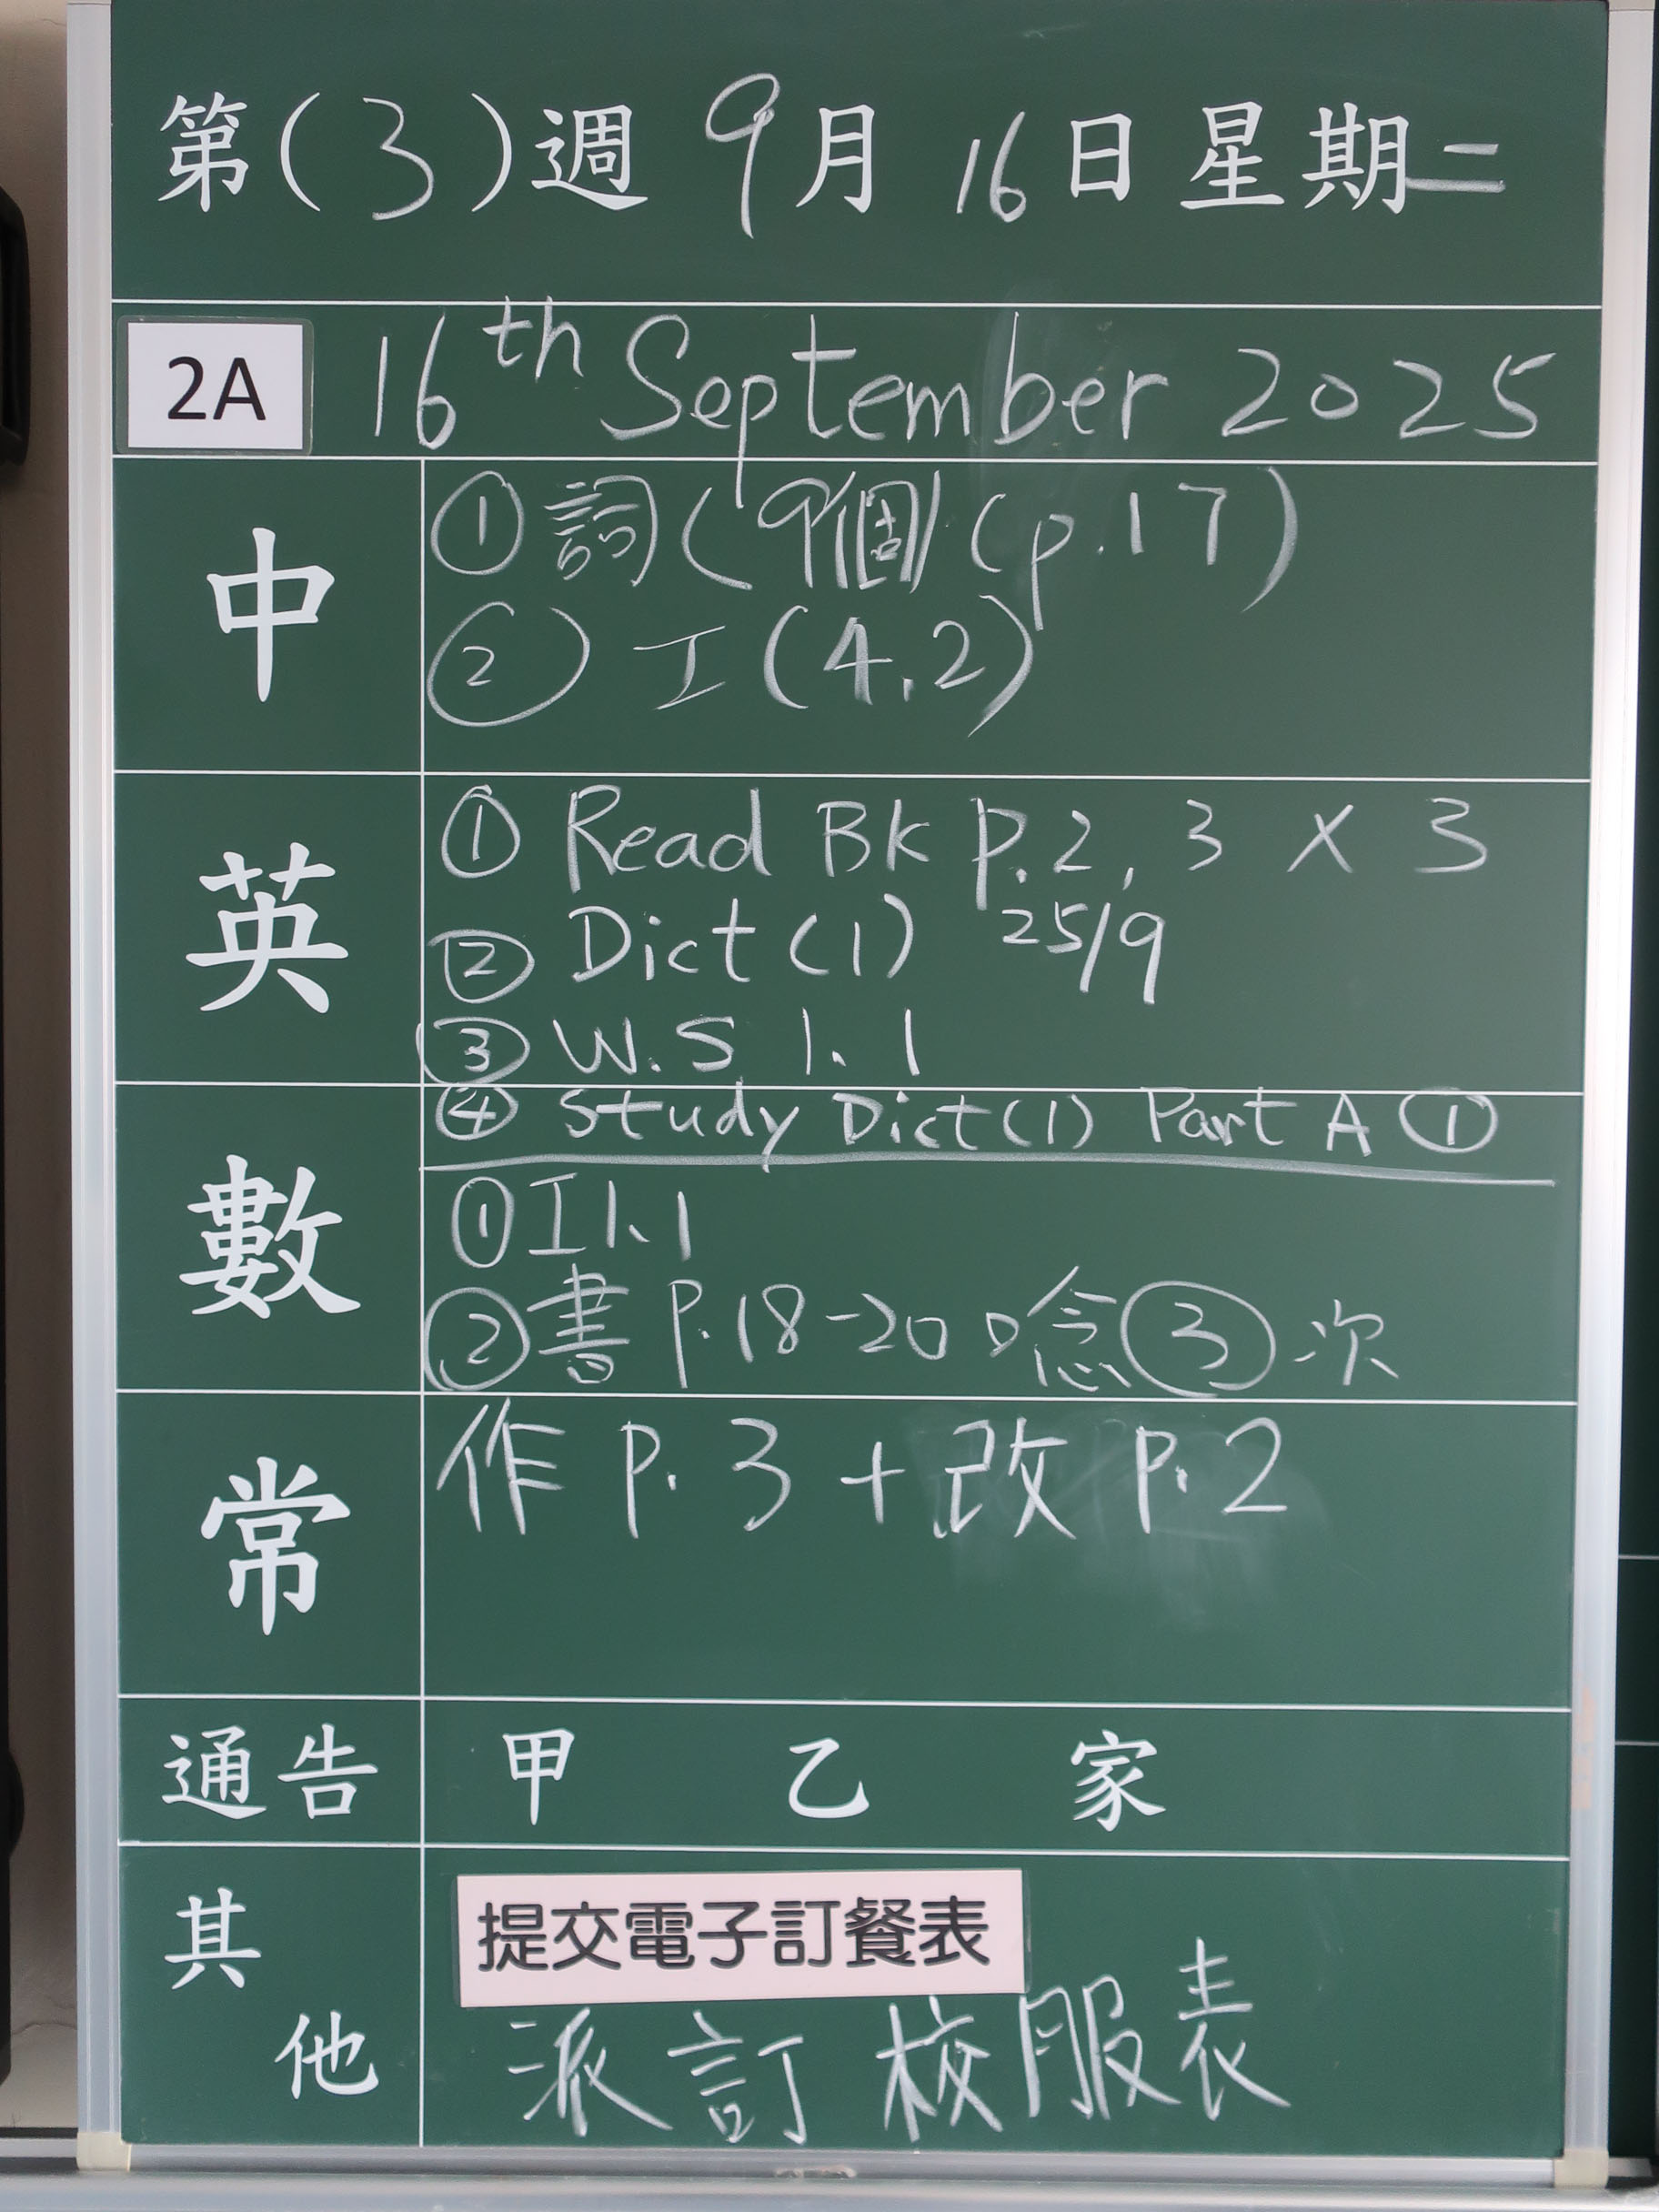 第(3)週 9月 16日 星期二
2A 16th September 2025
中
① 詞(9個)(p.17)
② 工(4.2)
英
① Read Bk p.2, 3 × 3
② Dict (1) 25/9
③ W.S 1.1
④ Study Dict(1) Part A ①
數
① 工1.1
② 書 P.18-20 口唸 ③ 次
常
作 P.3 + 改 P.2
通告 甲 乙 家
其他
提交電子訂餐表
派訂校服表